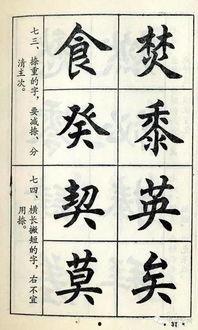 焚黍英矣
食癸契莫
七三、捺重的字，要减捺、分
清主次。
七四、横长撇短的字，右不宜
用捺。
· 37 ·